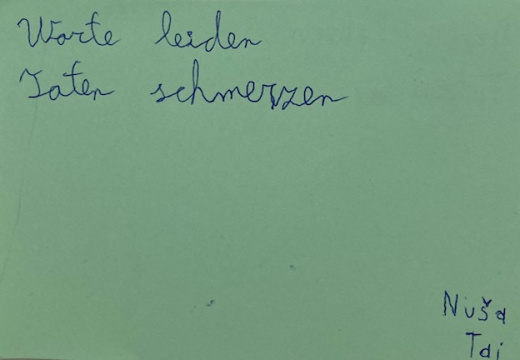 Worte leiden
Taten schmerzen
Nuša
Tai